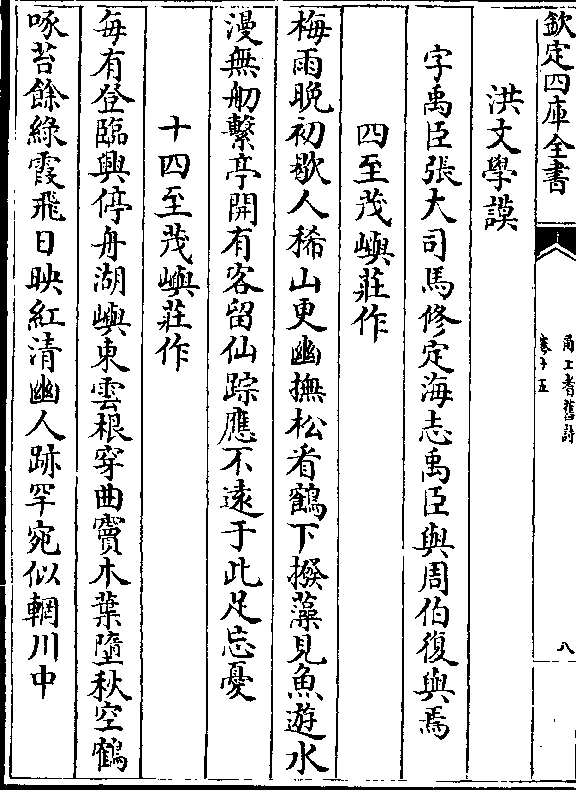 欽定四庫全書
甬上耆舊詩
卷十五
八
洪文學謨
字禹臣張大司馬修定海志禹臣與周伯復與焉
四至茂嶼莊作
梅雨晚初歇人稀山更幽撫松看鶴下撥藻見魚遊水
漫無舠繫亭開有客留仙踪應不遠于此足忘憂
十四至茂嶼莊作
每有登臨興停舟湖嶼東雲根穿曲竇木葉墮秋空鶴
啄苔餘綠霞飛日映紅清幽人跡罕宛似輞川中